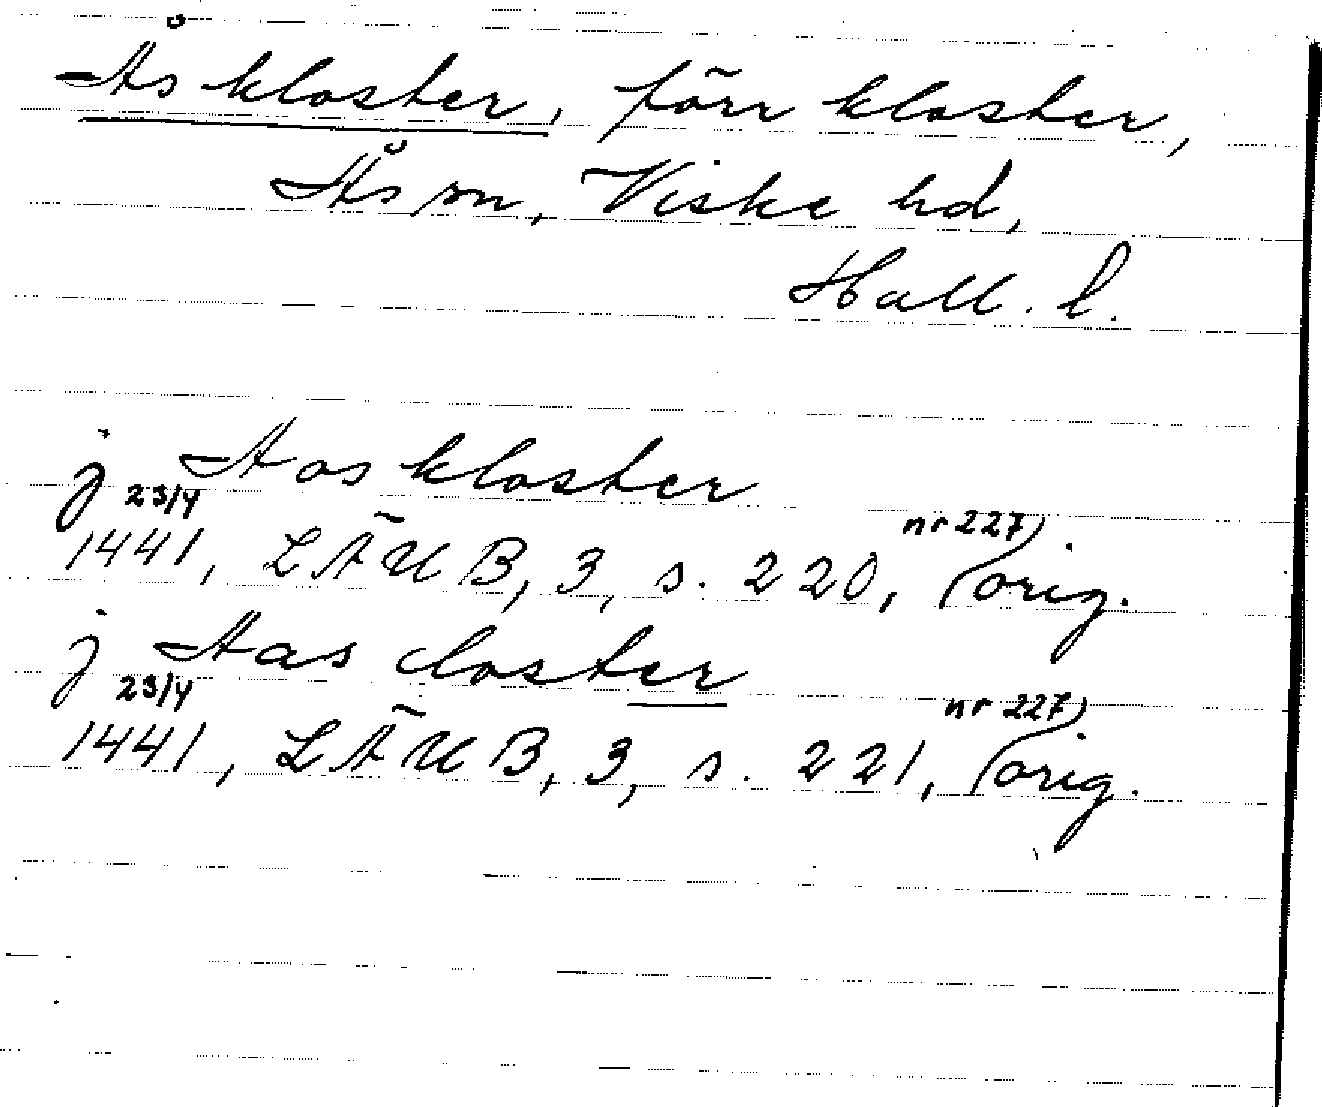 Ås kloster, förr kloster,
Ås sn, Viske hd,
Hall. l.
j Aas kloster
23/4 nr 227)
1441, LÄUB, 3, s. 220, (orig.
j Aas closter
23/4 nr 227)
1441, LÄUB, 3, s. 221, (orig.